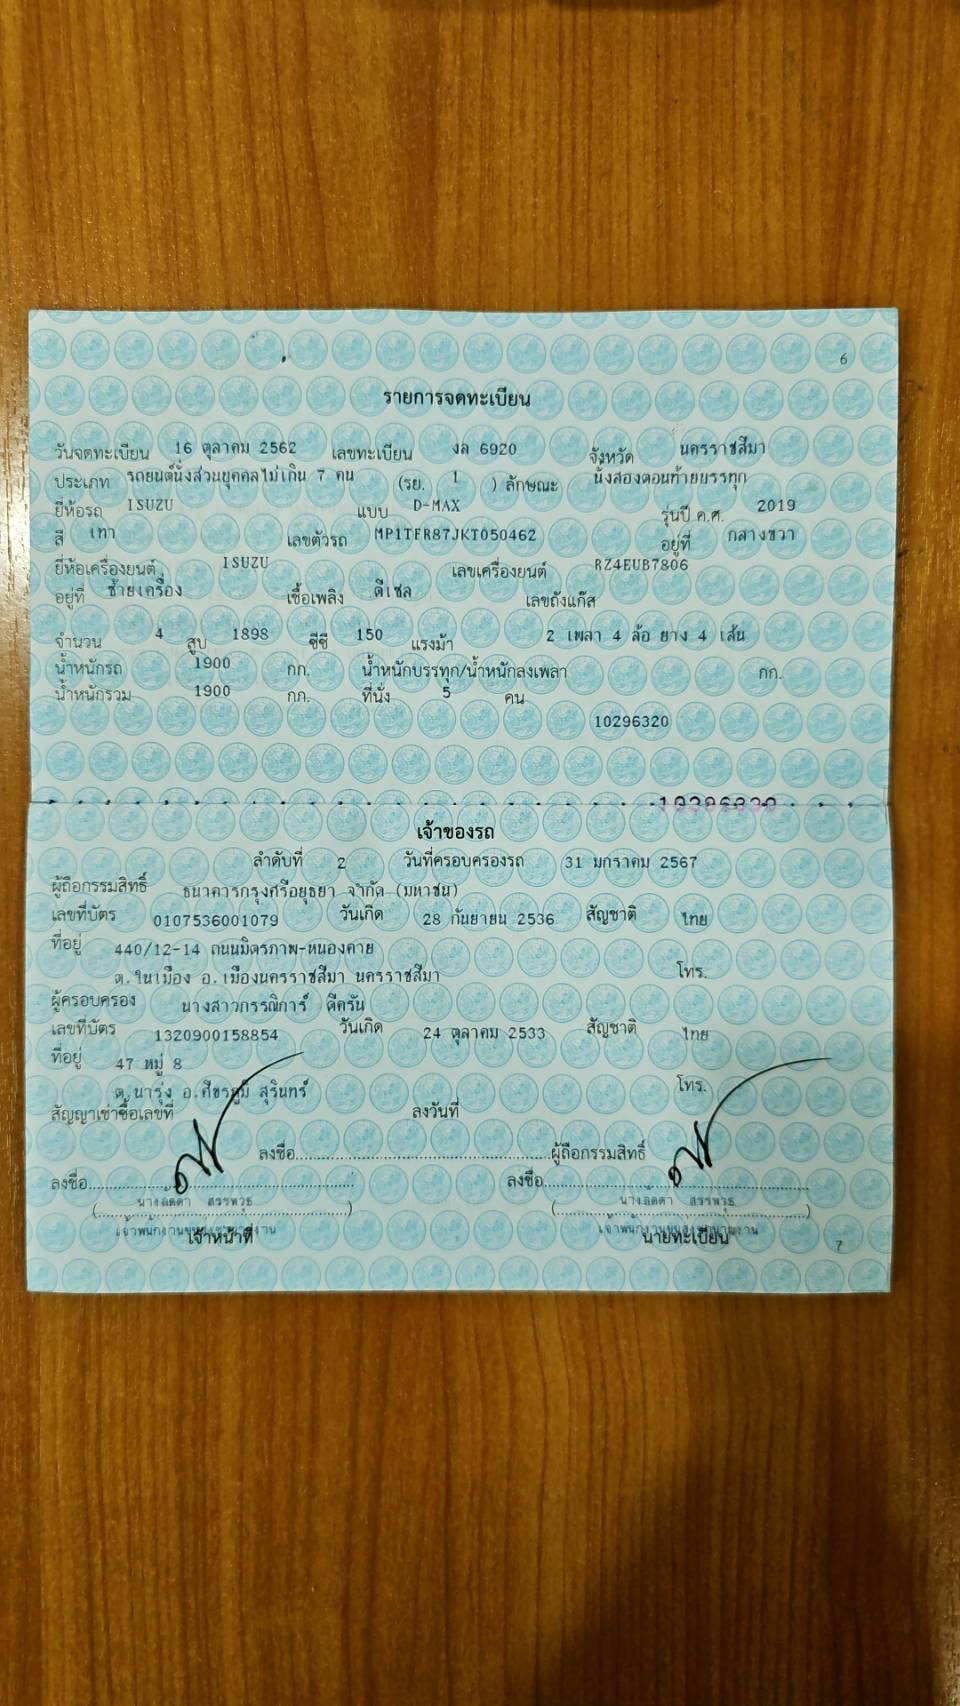 6
รายการจดทะเบียน
วันจดทะเบียน 16 ตุลาคม 2562 เลขทะเบียน งล 6920 จังหวัด นครราชสีมา
ประเภท รถยนต์นั่งส่วนบุคคลไม่เกิน 7 คน (รย. 1 ) ลักษณะ นั่งสองตอนท้ายบรรทุก
ยี่ห้อรถ ISUZU แบบ D-MAX รุ่นปี ค.ศ. 2019
สี เทา เลขตัวรถ MP1TFR87JKT050462 อยู่ที่ กลางขวา
ยี่ห้อเครื่องยนต์ ISUZU เลขเครื่องยนต์ RZ4EUB7806
อยู่ที่ ซ้ายเครื่อง เชื้อเพลิง ดีเซล เลขถังแก๊ส
จำนวน 4 สูบ 1898 ซีซี 150 แรงม้า 2 เพลา 4 ล้อ ยาง 4 เส้น
น้ำหนักรถ 1900 กก. น้ำหนักบรรทุก/น้ำหนักลงเพลา กก.
น้ำหนักรวม 1900 กก. ที่นั่ง 5 คน
10296320
10296320
เจ้าของรถ
ลำดับที่ 2 วันที่ครอบครองรถ 31 มกราคม 2567
ผู้ถือกรรมสิทธิ์ ธนาคารกรุงศรีอยุธยา จำกัด (มหาชน)
เลขที่บัตร 0107536001079 วันเกิด 28 กันยายน 2536 สัญชาติ ไทย
ที่อยู่ 440/12-14 ถนนมิตรภาพ-หนองคาย
ต.ในเมือง อ.เมืองนครราชสีมา นครราชสีมา โทร.
ผู้ครอบครอง นางสาวกรรณิการ์ ดีครัน
เลขที่บัตร 1320900158854 วันเกิด 24 ตุลาคม 2533 สัญชาติ ไทย
ที่อยู่ 47 หมู่ 8
ต.นารุ่ง อ.ศีขรภูมิ สุรินทร์ โทร.
สัญญาเช่าซื้อเลขที่ ลงวันที่
ลงชื่อ ผู้ถือกรรมสิทธิ์
ลงชื่อ ลงชื่อ
(นางลัดดา สรรพวุธ) (นางลัดดา สรรพวุธ)
เจ้าหน้าที่ นายทะเบียน
7